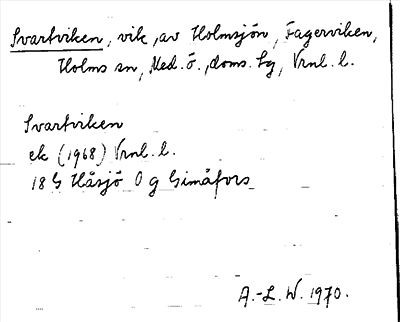 Svartviken, vik, av Holmsjön, Fagerviken,
Holms sn, Med. ö., doms. sg, Vrnl. l.
Svartviken
ek (1968) Vrnl. l.
18 G Håsjö 0 g Gimåfors
A.-L. W. 1970.